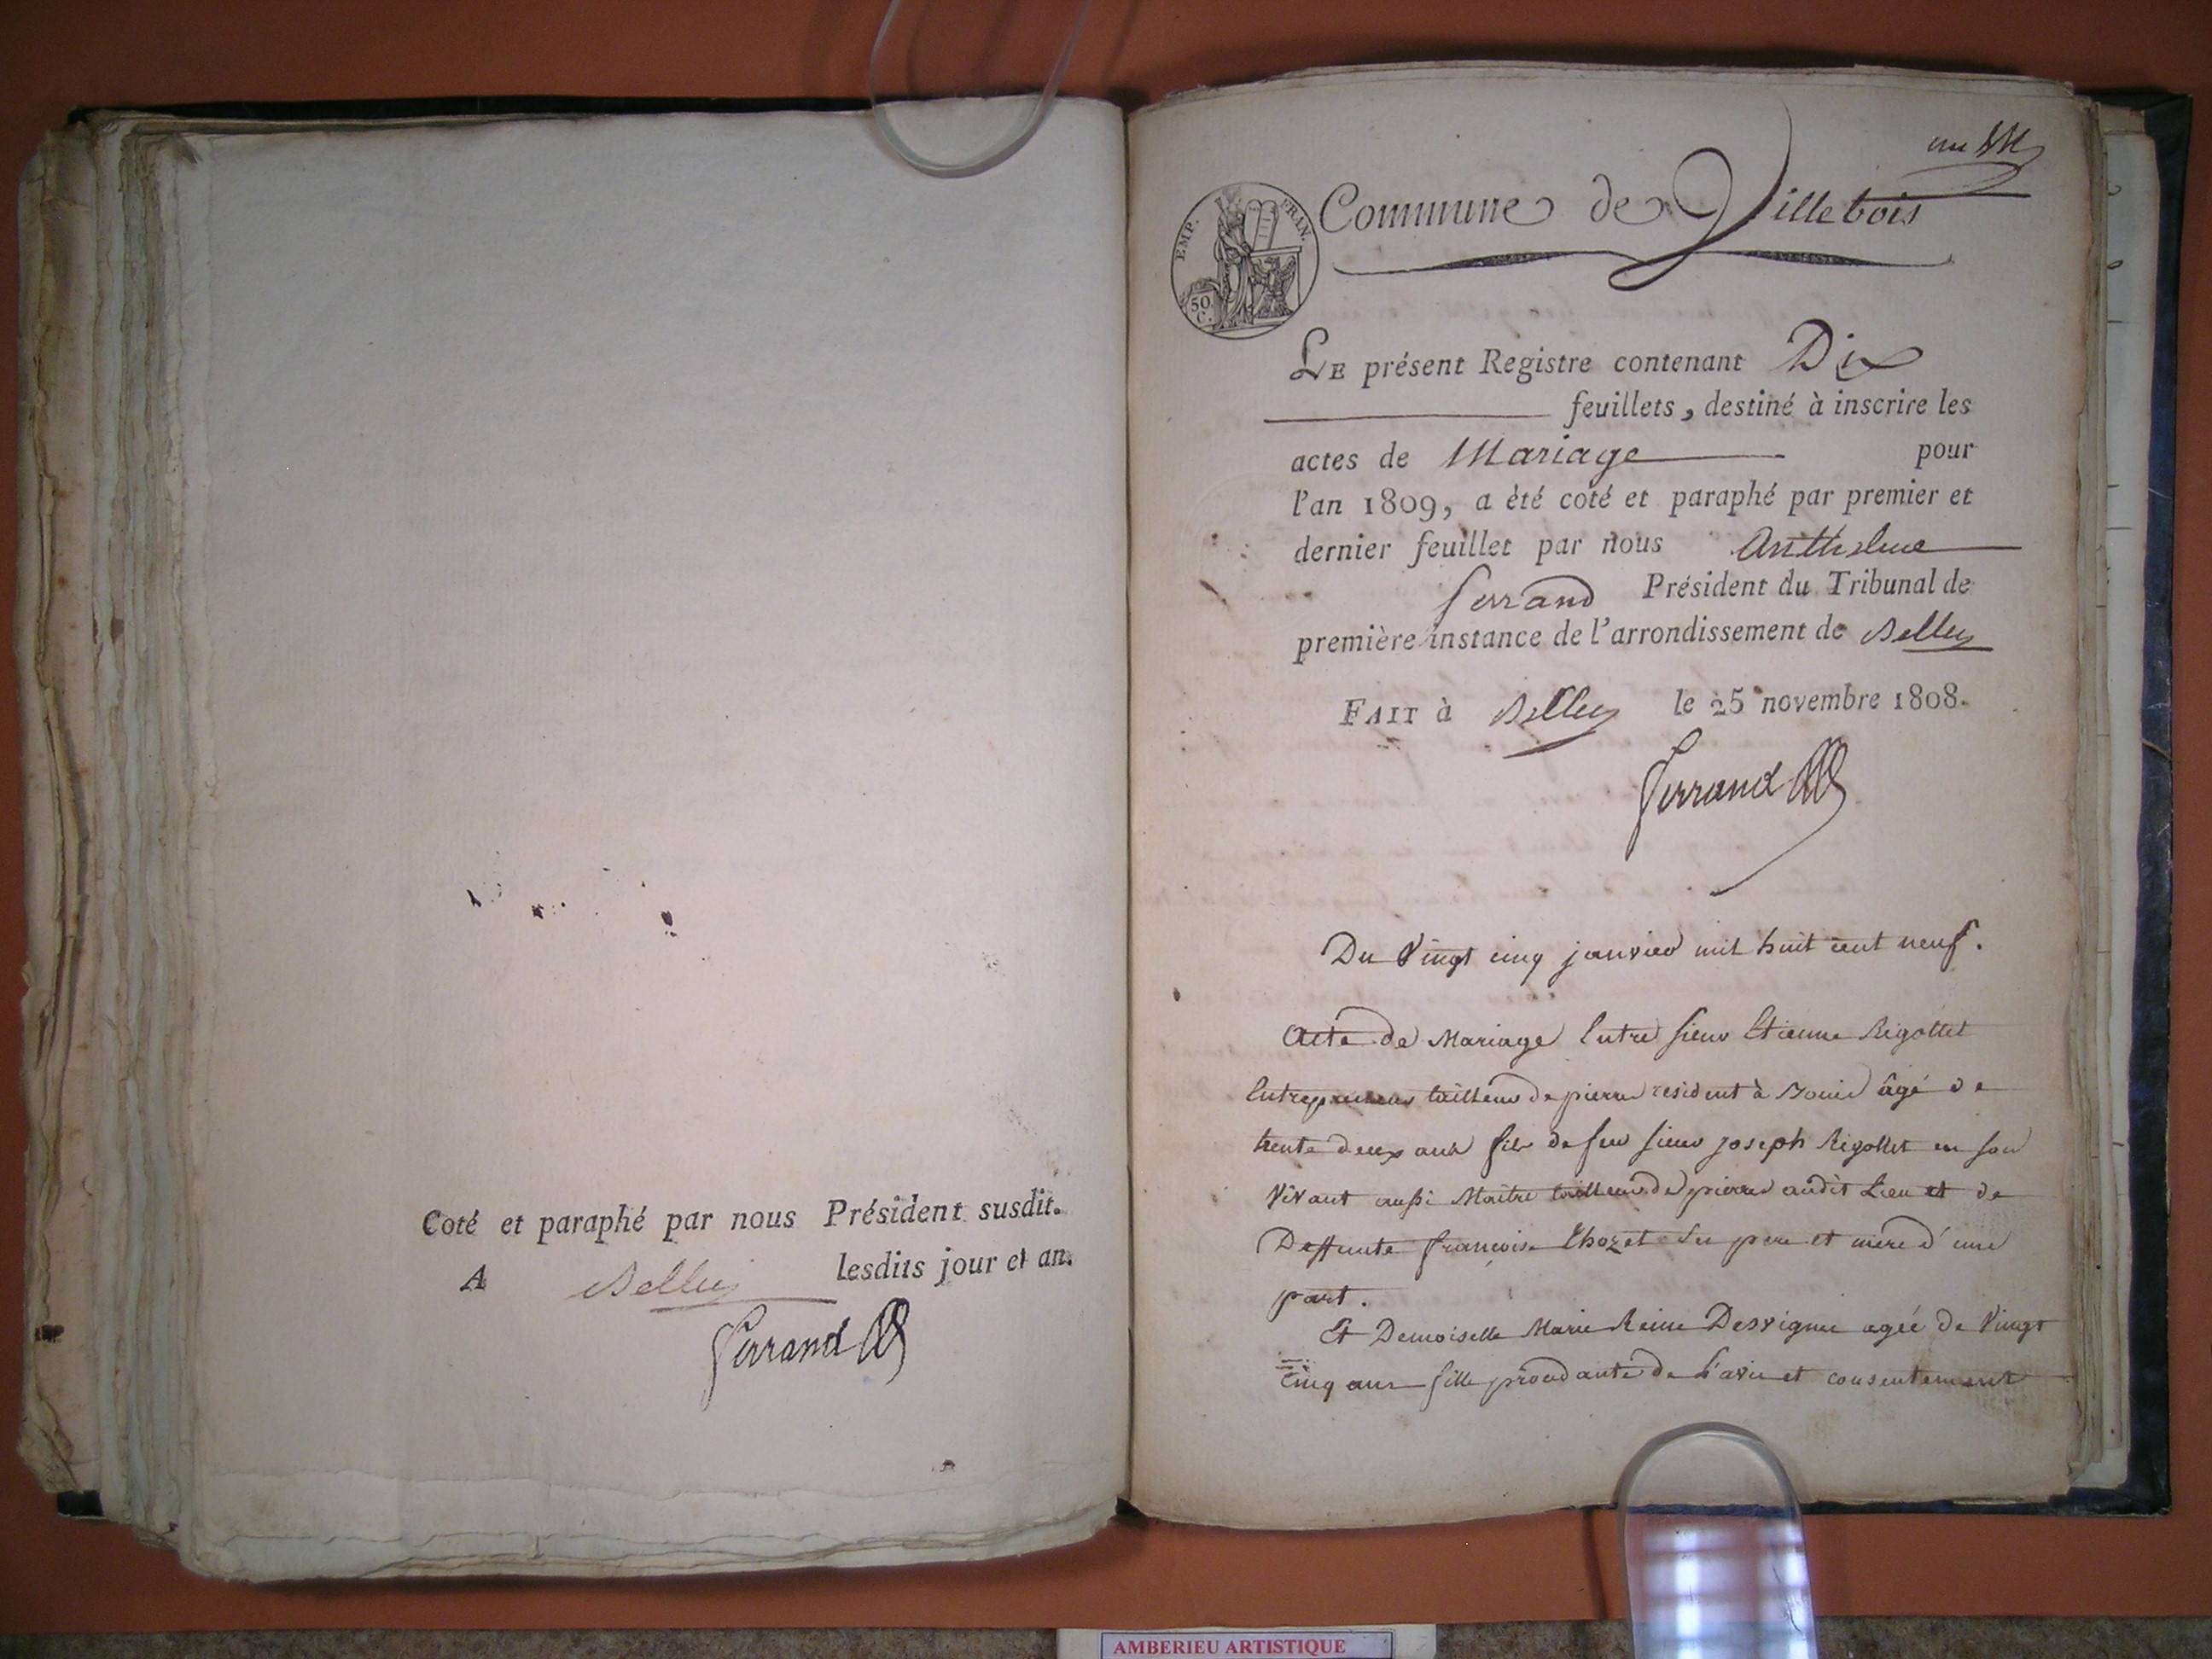 Coté et paraphé par nous Président susdit.
A Belley lesdits jour et an.
Ferrand
un
EMP. FRAN.
50 C.
Commune de Villebois
LE présent Registre contenant Dix
feuillets, destiné à inscrire les
actes de Mariage pour
l'an 1809, a été coté et paraphé par premier et
dernier feuillet par nous Anthelme
Ferrand Président du Tribunal de
première instance de l'arrondissement de Belley
FAIT à Belley le 25 novembre 1808.
Ferrand
Du Vingt cinq janvier mil huit cent neuf.
Acte de Mariage Entre sieur Etienne Rigollet
Entrepreneur tailleur de pierre resident à âgé de
trente deux ans fils de feu sieur joseph Rigollet en son
Vivant aussi Maître tailleur de pierres audit Lieu et de
Deffunte françoise Chozet ses pere et mere d'une
part.
Et Demoiselle Marie Reine Desvignes agée de Vingt
Cinq ans fille de L'avis et consentement
AMBERIEU ARTISTIQUE